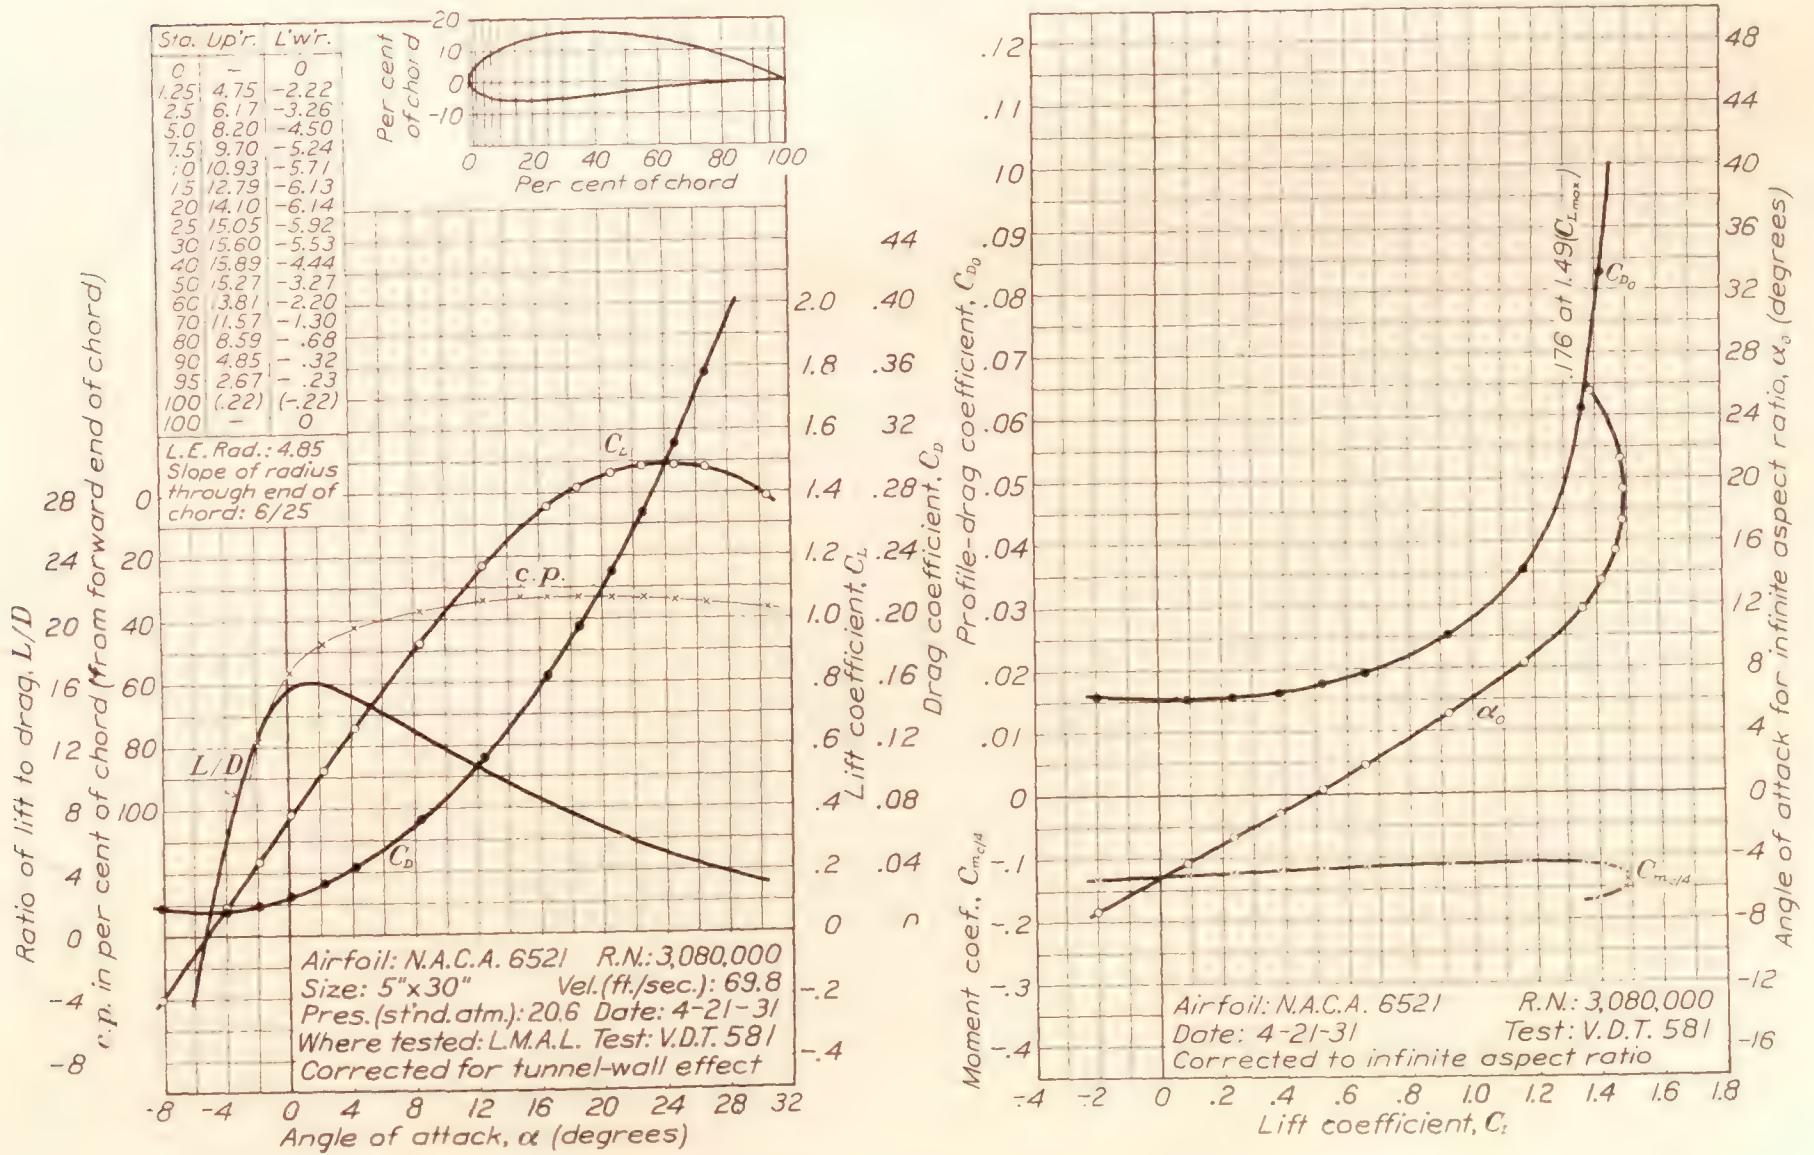 Sta. Up'r. L'w'r.
0 - 0
1.25 4.75 -2.22
2.5 6.17 -3.26
5.0 8.20 -4.50
7.5 9.70 -5.24
10 10.93 -5.71
15 12.79 -6.13
20 14.10 -6.14
25 15.05 -5.92
30 15.60 -5.53
40 15.89 -4.44
50 15.27 -3.27
60 13.81 -2.20
70 11.57 -1.30
80 8.59 - .68
90 4.85 - .32
95 2.67 - .23
100 (.22) (-.22)
100 - 0
L.E. Rad.: 4.85
Slope of radius
through end of
chord: 6/25
Per cent
of chord
20
10
0
-10
0 20 40 60 80 100
Per cent of chord
Ratio of lift to drag, L/D
28
24
20
16
12
8
4
0
-4
-8
c.p. in per cent of chord (from forward end of chord)
0
20
40
60
80
100
C_L
c.p.
L/D
C_D
2.0
1.8
1.6
1.4
1.2
1.0
.8
.6
.4
.2
0
-.2
-.4
Lift coefficient, C_L
44
.40
.36
32
.28
.24
.20
.16
.12
.08
.04
Drag coefficient, C_D
Airfoil: N.A.C.A. 6521 R.N.: 3,080,000
Size: 5"x30" Vel.(ft./sec.): 69.8
Pres. (st'nd. atm.): 20.6 Date: 4-21-31
Where tested: L.M.A.L. Test: V.D.T. 581
Corrected for tunnel-wall effect
-8 -4 0 4 8 12 16 20 24 28 32
Angle of attack, α (degrees)
Profile-drag coefficient, C_D₀
.12
.11
.10
.09
.08
.07
.06
.05
.04
.03
.02
.01
0
Moment coef., C_m c/4
-.1
-.2
-.3
-.4
.176 at 1.49 (C_L max)
C_D₀
α₀
C_m c/4
48
44
40
36
32
28
24
20
16
12
8
4
0
-4
-8
-12
-16
Angle of attack for infinite aspect ratio, α₀ (degrees)
Airfoil: N.A.C.A. 6521 R.N.: 3,080,000
Date: 4-21-31 Test: V.D.T. 581
Corrected to infinite aspect ratio
-.4 -.2 0 .2 .4 .6 .8 1.0 1.2 1.4 1.6 1.8
Lift coefficient, C_L